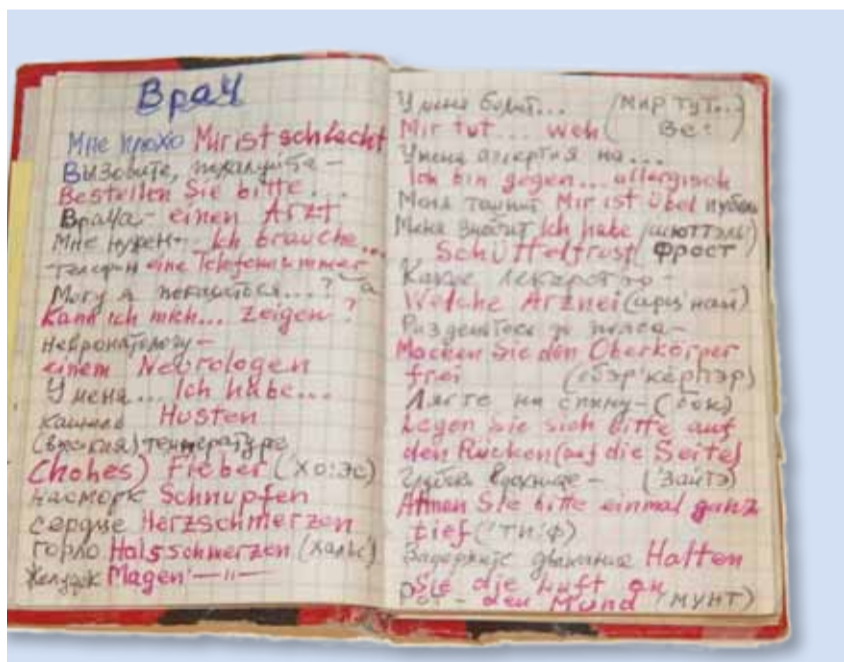 Врач
Мне плохо Mir ist schlecht
Вызовите, пожалуйста –
Bestellen Sie bitte...
Врача – einen Arzt
Мне нужен – Ich brauche...
телефон eine Telefonnummer
Могу я показаться...?
Kann ich mich... zeigen?
невропатологу –
einem Neurologen
У меня... Ich habe...
кашель Husten
(высокая) температура
(hohes) Fieber (хо:эс)
насморк Schnupfen
сердце Herzschmerzen
горло Halsschmerzen (хальс)
Желудок Magen –"–
У меня болит... (мир тут...
Mir tut... weh ве:)
У меня аллергия на...
Ich bin gegen... allergisch
Меня тошнит Mir ist übel
Меня знобит Ich habe (шюттэль)
Schüttelfrost фрост
Какое лекарство –
Welche Arznei (арц'най)
Разденьтесь до пояса –
Machen Sie den Oberkörper
frei (обэр'кёрпэр)
Лягте на спину – (бок)
Legen Sie sich bitte auf
den Rücken (auf die Seite)
Глубоко вдохните – ('зайтэ)
Atmen Sie bitte einmal ganz
tief ('ти:ф)
Задержите дыхание Halten
Sie die Luft an
рот – den Mund (мунт)